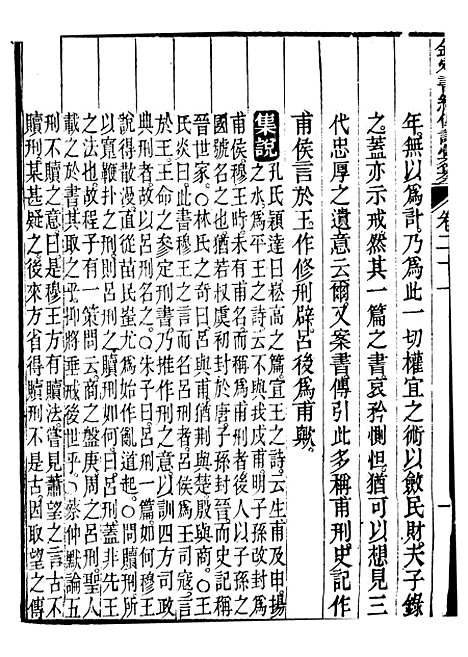 欽定書經傳說彙纂 卷二十一 一
年無以爲計乃爲此一切權宜之術以斂民財夫子錄
之蓋亦示戒然其一篇之書哀矜惻怛猶可以想見三
代忠厚之遺意云爾又案書傳引此多稱甫刑史記作
甫侯言於王作修刑辟呂後爲甫歟
集說 孔氏穎達曰崧高之篇宣王之詩云生甫及申揚
之水爲平王之詩云不與我戍甫明子孫改封爲
甫侯穆王時未有甫名而稱爲甫刑者後人以子孫之
國號名之也猶若叔虞初封於唐子孫封晉而史記稱
晉世家○林氏之奇曰呂與甫猶荆與楚殷與商○王
氏炎曰此書穆王之言而名呂刑者呂侯爲王司寇言
於王王命之參定刑書乃推作刑之意以訓四方司政
典刑者故以呂刑名之○朱子曰呂刑一篇如何穆王
說得散漫直從苗民蚩尤爲始作亂道起○問贖刑所
以寬鞭扑之刑則呂刑之贖刑如何曰呂刑蓋非先王
之法也故程子有一策問云商之盤庚周之呂刑聖人
載之於書其取之乎抑將垂戒後世乎○蔡仲默論五
刑不贖之意曰是穆王方有贖法嘗見蕭望之言古不
贖刑某甚疑之後來方省得贖刑不是古因取望之傳